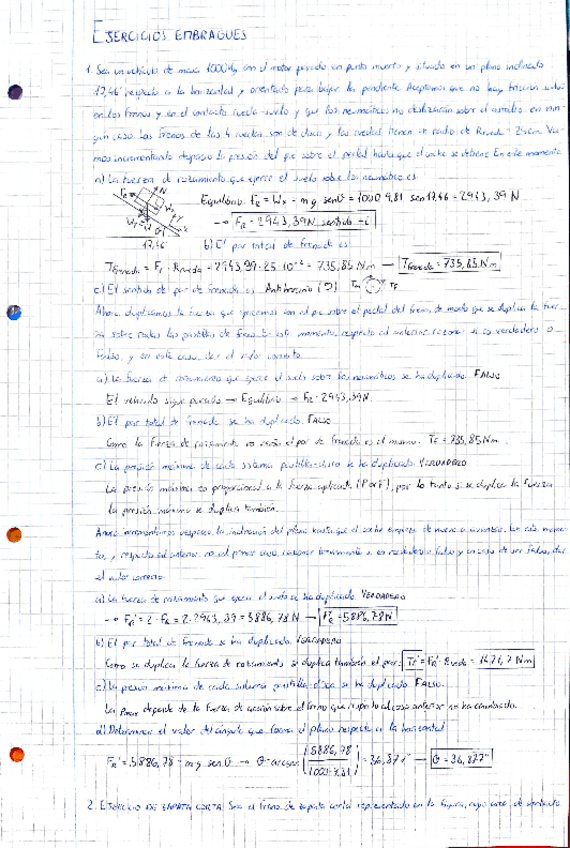 EJERCICIOS EMBRAGUES
1. Sea un vehículo de masa 1000kg con el motor parado en punto muerto y situado en un plano inclinado
17,46° respecto a la horizontal y orientado para bajar la pendiente. Aceptamos que no hay fricción
en los frenos y en el contacto rueda-suelo, y que los neumáticos no deslizarán sobre el asfalto en nin-
gún caso. Los frenos de las 4 ruedas son de disco y las ruedas tienen un radio de Rrueda = 25cm. Va-
mos incrementando despacio la presión del pie sobre el pedal hasta que el coche se detiene. En este momento
a) La fuerza de rozamiento que ejerce el suelo sobre los neumáticos es:
Equilibrio: FR = Wx = m g senθ = 1000 9,81 sen 17,46 = 2943,39 N
→ FR = 2943,39N sentido -i
17,46°
b) El par total de frenado es:
Tfrenado = Fr · Rrueda = 2943,39 · 25 · 10⁻² = 735,85 N m → Tfrenado = 735,85 N m
c) El sentido de par de frenado es: Antihorario
Ahora duplicamos la fuerza que ejercemos con el pie sobre el pedal del freno, de modo que se duplica la fuer-
za sobre todas las pastillas de freno. En este momento, respecto al anterior, razonar si es verdadero o
falso, y en este caso, dar el valor correcto
a) La fuerza de rozamiento que ejerce el suelo sobre los neumáticos se ha duplicado. FALSO
El vehículo sigue parado → Equilibrio → FR = 2943,39N
b) El par total de frenado se ha duplicado. FALSO
Como la fuerza de rozamiento no varía el par de frenado es el mismo. TF = 735,85Nm.
c) La presión máxima de cada sistema pastilla-disco se ha duplicado. VERDADERO
La presión máxima es proporcional a la fuerza aplicada (P∝F), por lo tanto si se duplica la fuerza
la presión máxima se duplica también.
Ahora incrementamos despacio la inclinación del plano hasta que el coche empieza de nuevo a
to, y respecto al anterior, no al primer caso, razonar si es verdadero o falso y en caso de ser falso, dar
el valor correcto.
a) La fuerza de rozamiento que ejerce el suelo se ha duplicado VERDADERO
→ FR' = 2 · FR = 2 · 2943,39 = 5886,78 N → FR' = 5886,78N
b) El par total de frenado se ha duplicado. VERDADERO
Como se duplica la fuerza de rozamiento se duplica también el par: TF' = FR' · Rrueda = 1471,7 Nm
c) La presión máxima de cada sistema pastilla-disco se ha duplicado. FALSO.
La Pmax depende de la fuerza de acción sobre el freno que respecto al caso anterior no ha cambiado.
d) Determinar el valor del ángulo que forma el plano respecto a la horizontal
FR' = 5886,78 = m g sen θ → θ = arcsen (5886,78 / 1000·9,81) = 36,877° → θ = 36,877°
2. EJERCICIO DE ZAPATA CORTA: Sea el freno de zapata corta representado en la figura, cuyo